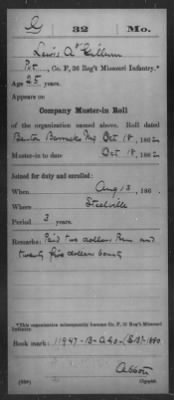 32 Mo.
Lewis A.
Pvt, Co. F, 32 Reg't Missouri Infantry.*
Age 25 years.
Appears on
Company Muster-in Roll
of the organization named above. Roll dated
Benton Barracks Mo, Oct 18, 1862.
Muster-in to date Oct 18, 1862.
Joined for duty and enrolled:
When Aug 13, 186
Where Steelville
Period 3 years.
Remarks: Paid two dollars Prem and
twenty five dollars bounty
*This organization subsequently became Co. F, 32 Reg't Missouri
Infantry.
Book mark: 1890
Abbott
Copyist.